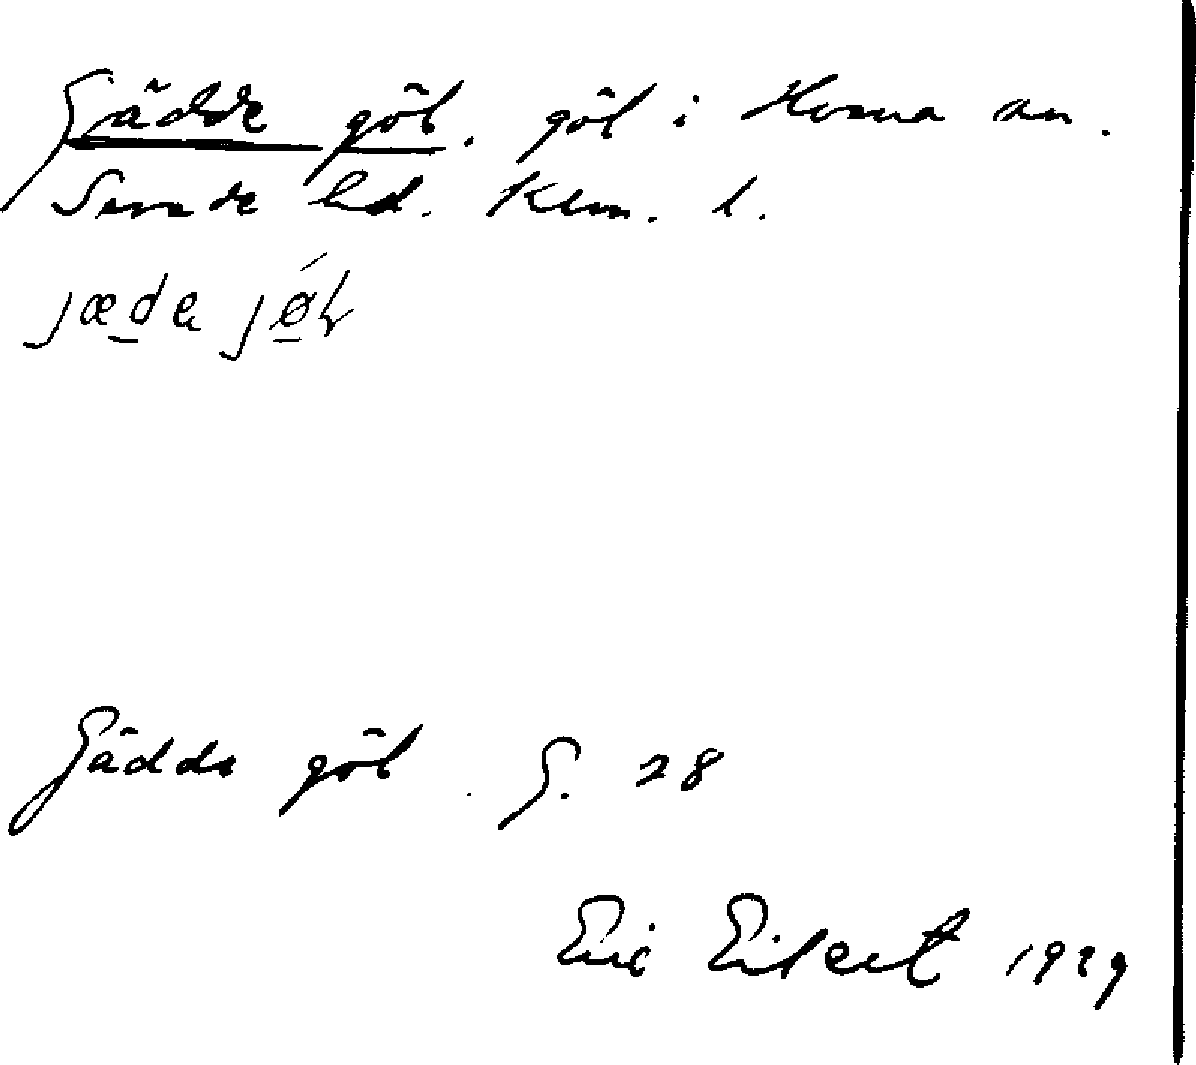 Gädde göl. göl i Horna sn.
hd. Klm. l.
jæde jøl
Gädde göl. G. 28
Eric Eilert 1929